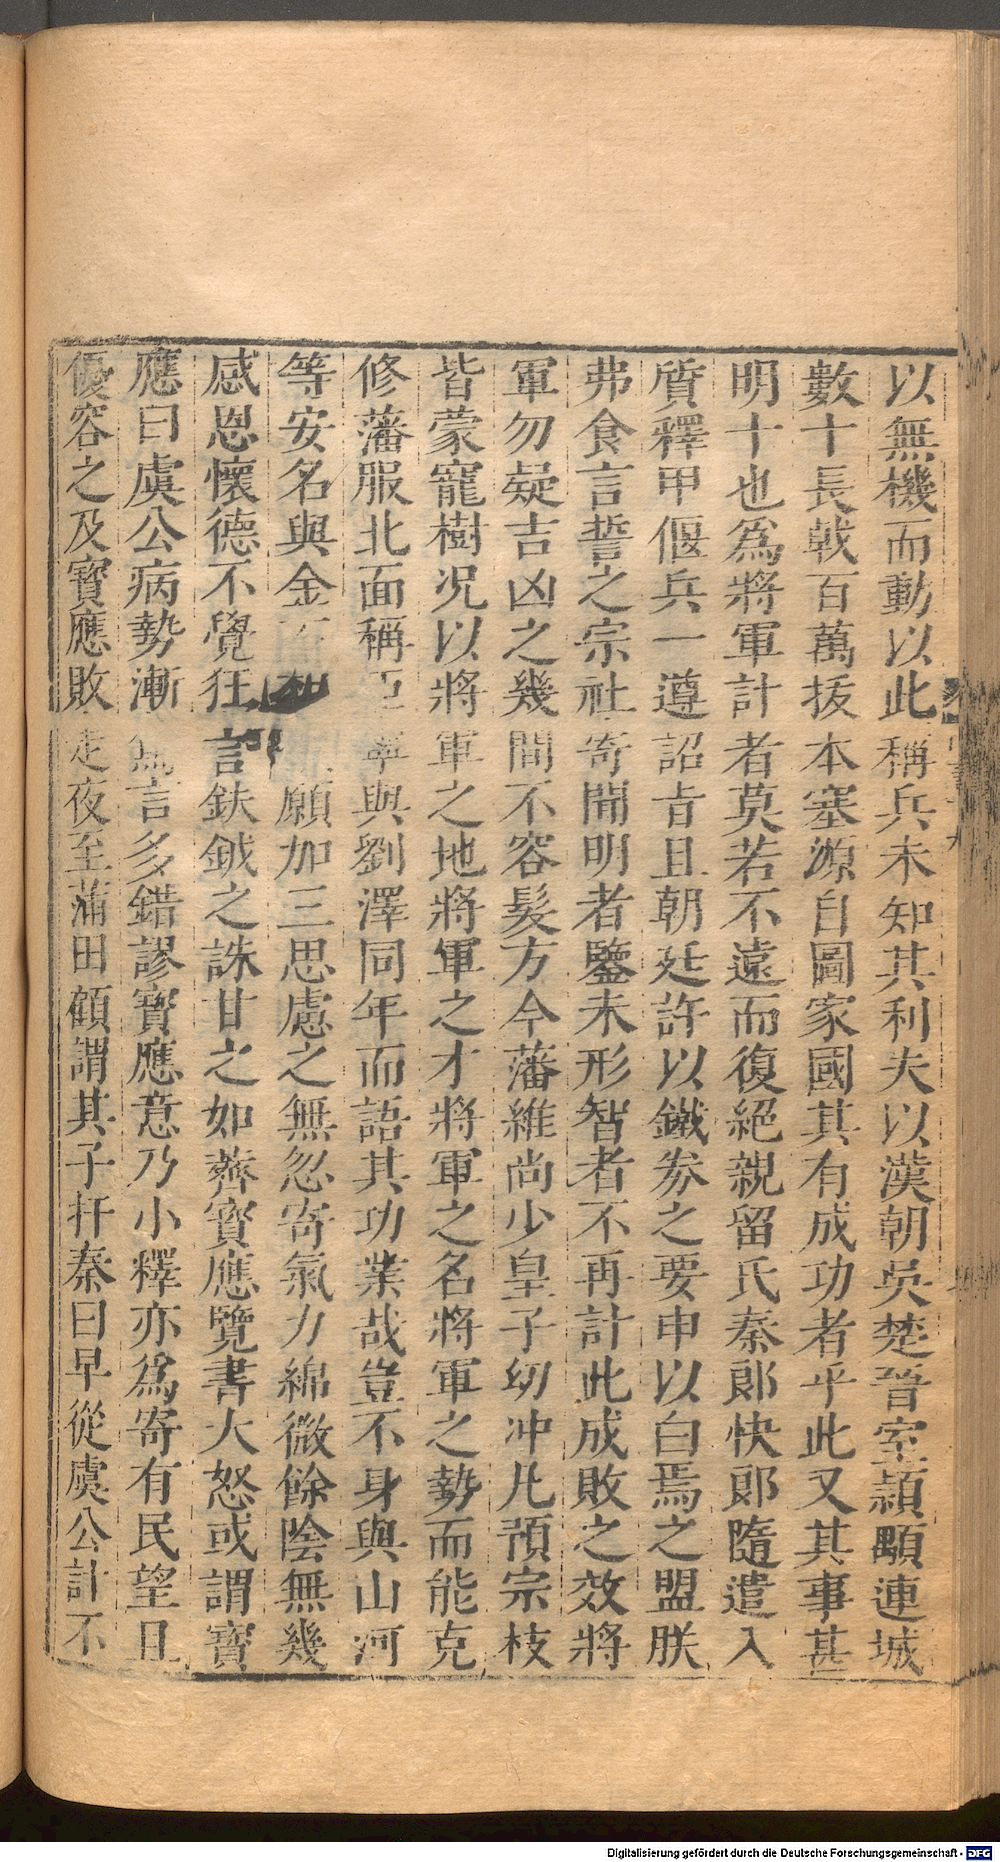 以無機而動以此稱兵未知其利夫以漢朝吳楚晉室頴顒連城
數十長戟百萬拔本塞源自圖家國其有成功者乎此又其事甚
明十也爲將軍計者莫若不遠而復絕親留氏秦郎快郎隨遣入
質釋甲偃兵一遵詔旨且朝廷許以鐵劵之要申以白焉之盟朕
弗食言誓之宗社寄聞明者鑒未形智者不再計此成敗之效將
軍勿疑吉凶之幾間不容髮方今藩維尚少皇子幼冲凡預宗枝
皆蒙寵樹况以將軍之地將軍之才將軍之名將軍之勢而能克
修藩服北面稱臣寧與劉澤同年而語其功業哉豈不身與山河
等安名與金石相願加三思慮之無忽寄氣力綿微餘陰無幾
感恩懷德不覺狂言鈇鉞之誅甘之如薺寶應覽書大怒或謂寶
應曰虞公病勢漸言多錯謬寶應意乃小釋亦爲寄有民望且
優容之及寶應敗走夜至蒲田顧謂其子扞秦曰早從虞公計不
Digitalisierung gefördert durch die Deutsche Forschungsgemeinschaft - DFG